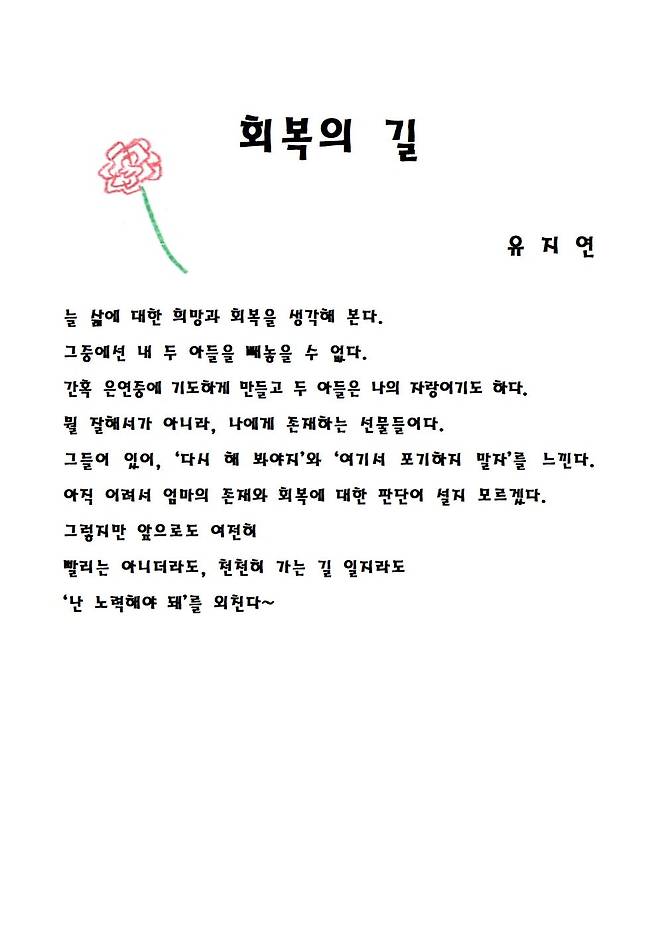 회복의 길
유 지 연
늘 삶에 대한 희망과 회복을 생각해 본다.
그중에선 내 두 아들을 빼놓을 수 없다.
간혹 은연중에 기도하게 만들고 두 아들은 나의 자랑이기도 하다.
뭘 잘해서가 아니라, 나에게 존재하는 선물들이다.
그들이 있어, ‘다시 해 봐야지’와 ‘여기서 포기하지 말자’를 느낀다.
아직 어려서 엄마의 존재와 회복에 대한 판단이 설지 모르겠다.
그렇지만 앞으로도 여전히
빨리는 아니더라도, 천천히 가는 길 일지라도
‘난 노력해야 돼’를 외친다~